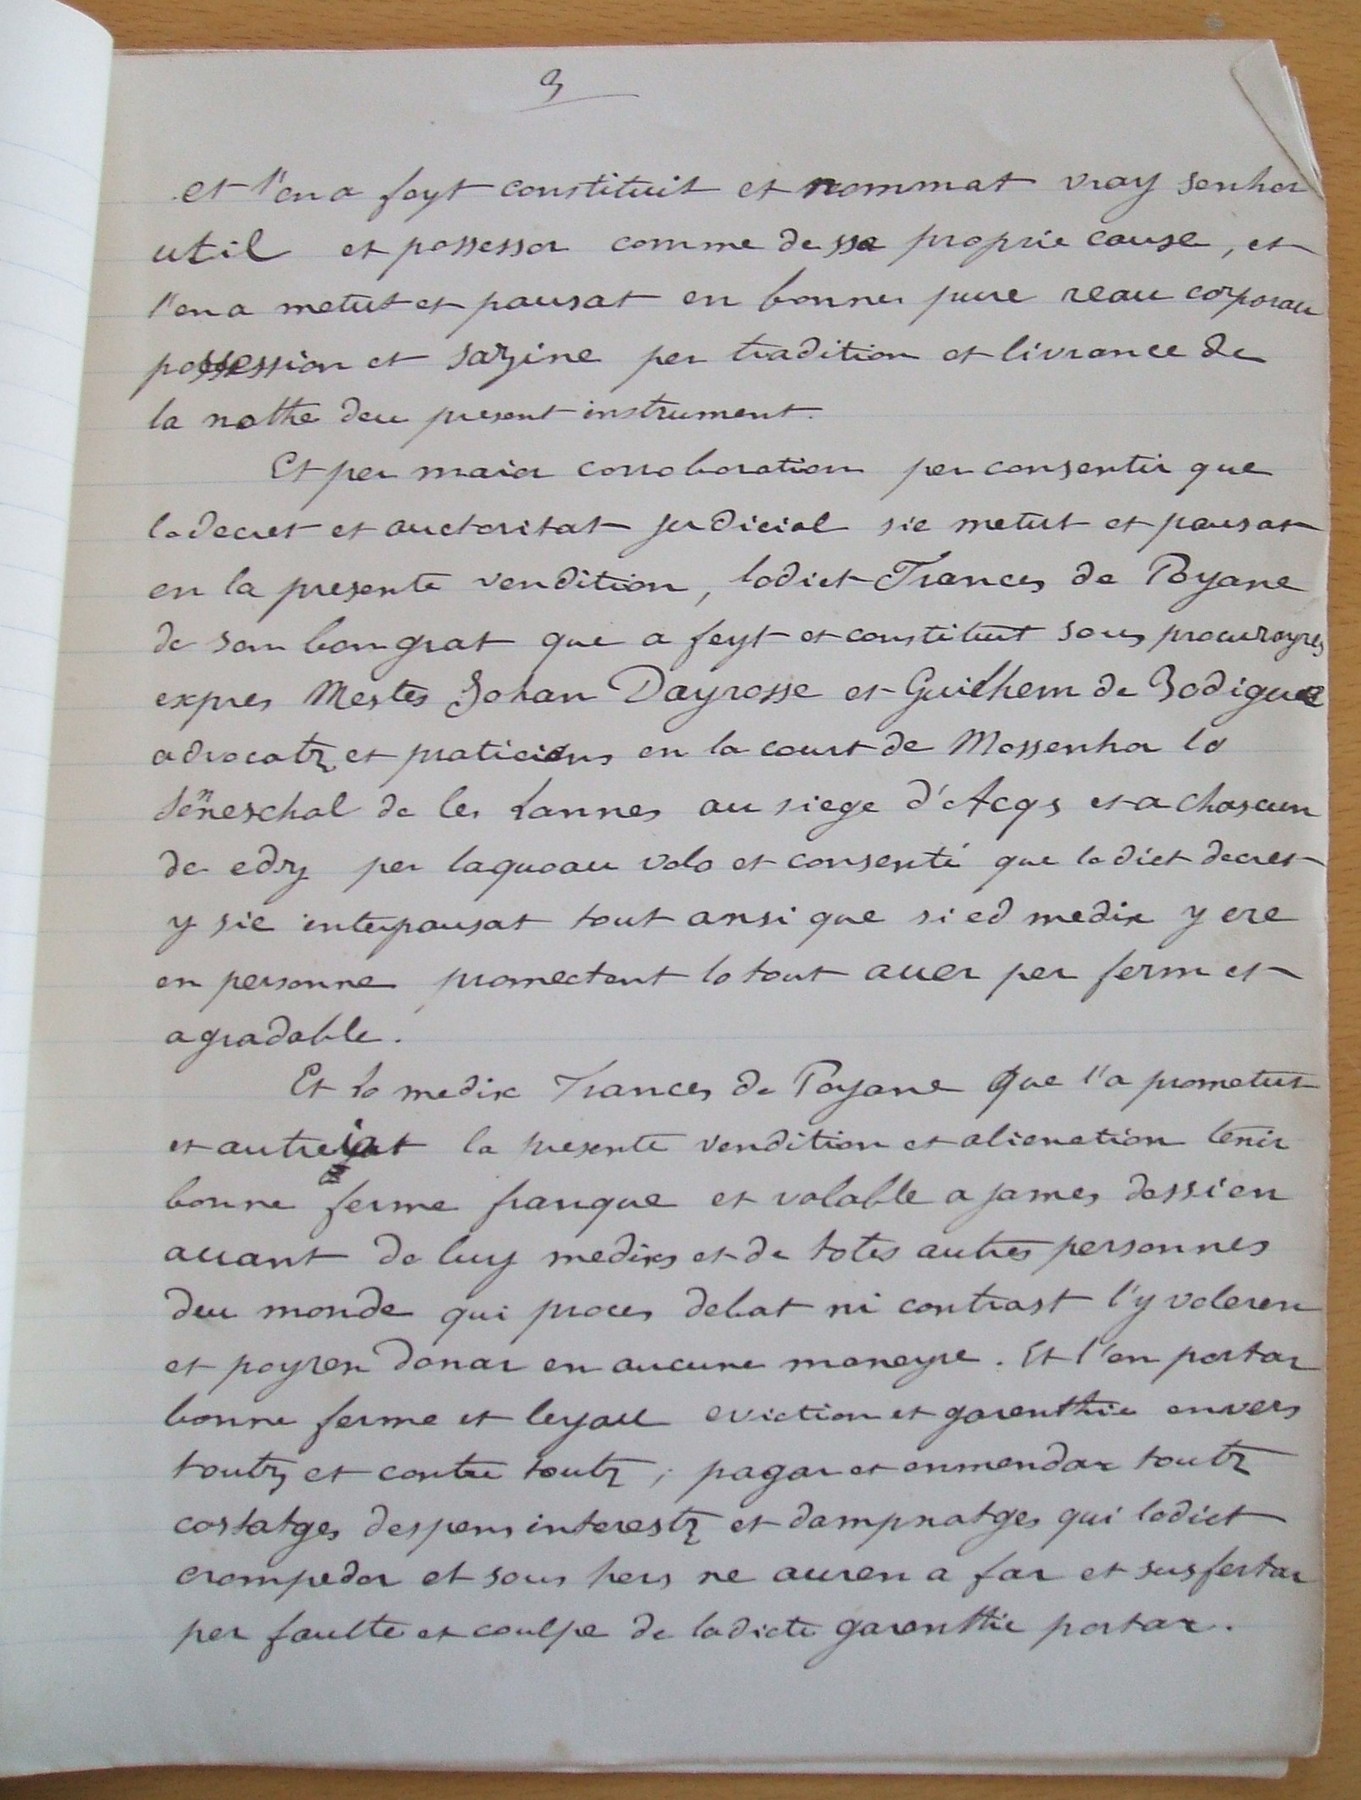 3
et l'en a feyt constituit et nommat vray senhor
util et possessor comme de ssa proprie cause, et
l'en a metut et pausat en bonne pure reau corporau
possession et sazine per tradition et livrance de
la nothe deu present instrument.
Et per maior corroboration per consentir que
lo decret et auctoritat judicial sie metut et pausat
en la presente vendition, lodict Frances de Poyane
de son bon grat que a feyt et constituit sous procurayres
expres Mestes Johan Dayrosse et Guilhem de Bodigues
advocatz et praticiens en la court de Mossenhor lo
Seneschal de les Lannes au siege d'Acqs et a chascun
de edz per laquoau volo et consenti que lo dict decret
y sie interpausat tout ansi que si ed medix y ere
en personne promectent lo tout auer per ferm et
agradable.
Et lo medix Frances de Poyane que l'a prometut
et autreiat la presente vendition et alienation tenir
bonne ferme franque et valable a james dessi en
auant de luy medixs et de totes autres personnes
deu monde qui proces debat ni contrast l'y voleren
et poyren donar en aucune maneyre. Et l'en portar
bonne ferme et leyau eviction et garenthie envers
toutz et contre toutz, pagar et enmendar toutz
costatges despens interestz et dampnatges qui lodict
crompedor et sous hers ne auren a far et susfertar
per faulte et coulpe de ladicte garenthie portar.